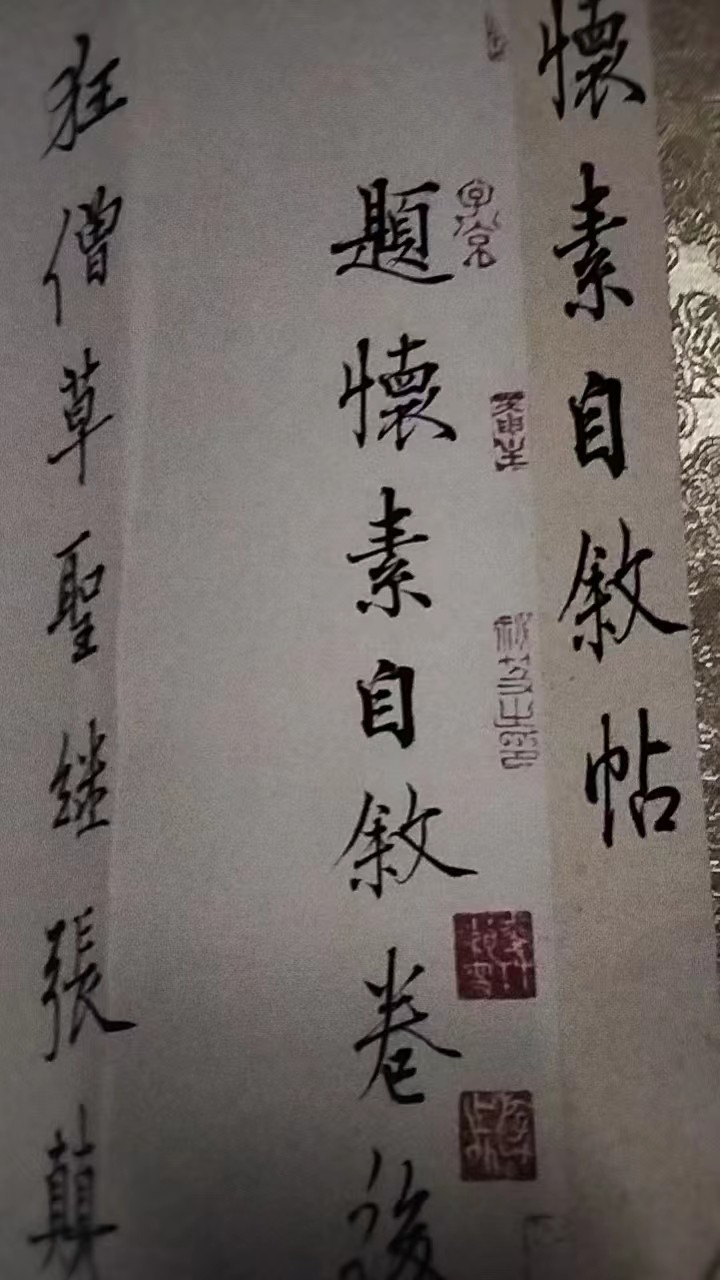 懷素自敘帖
題懷素自敘卷後
狂僧草聖继張顛